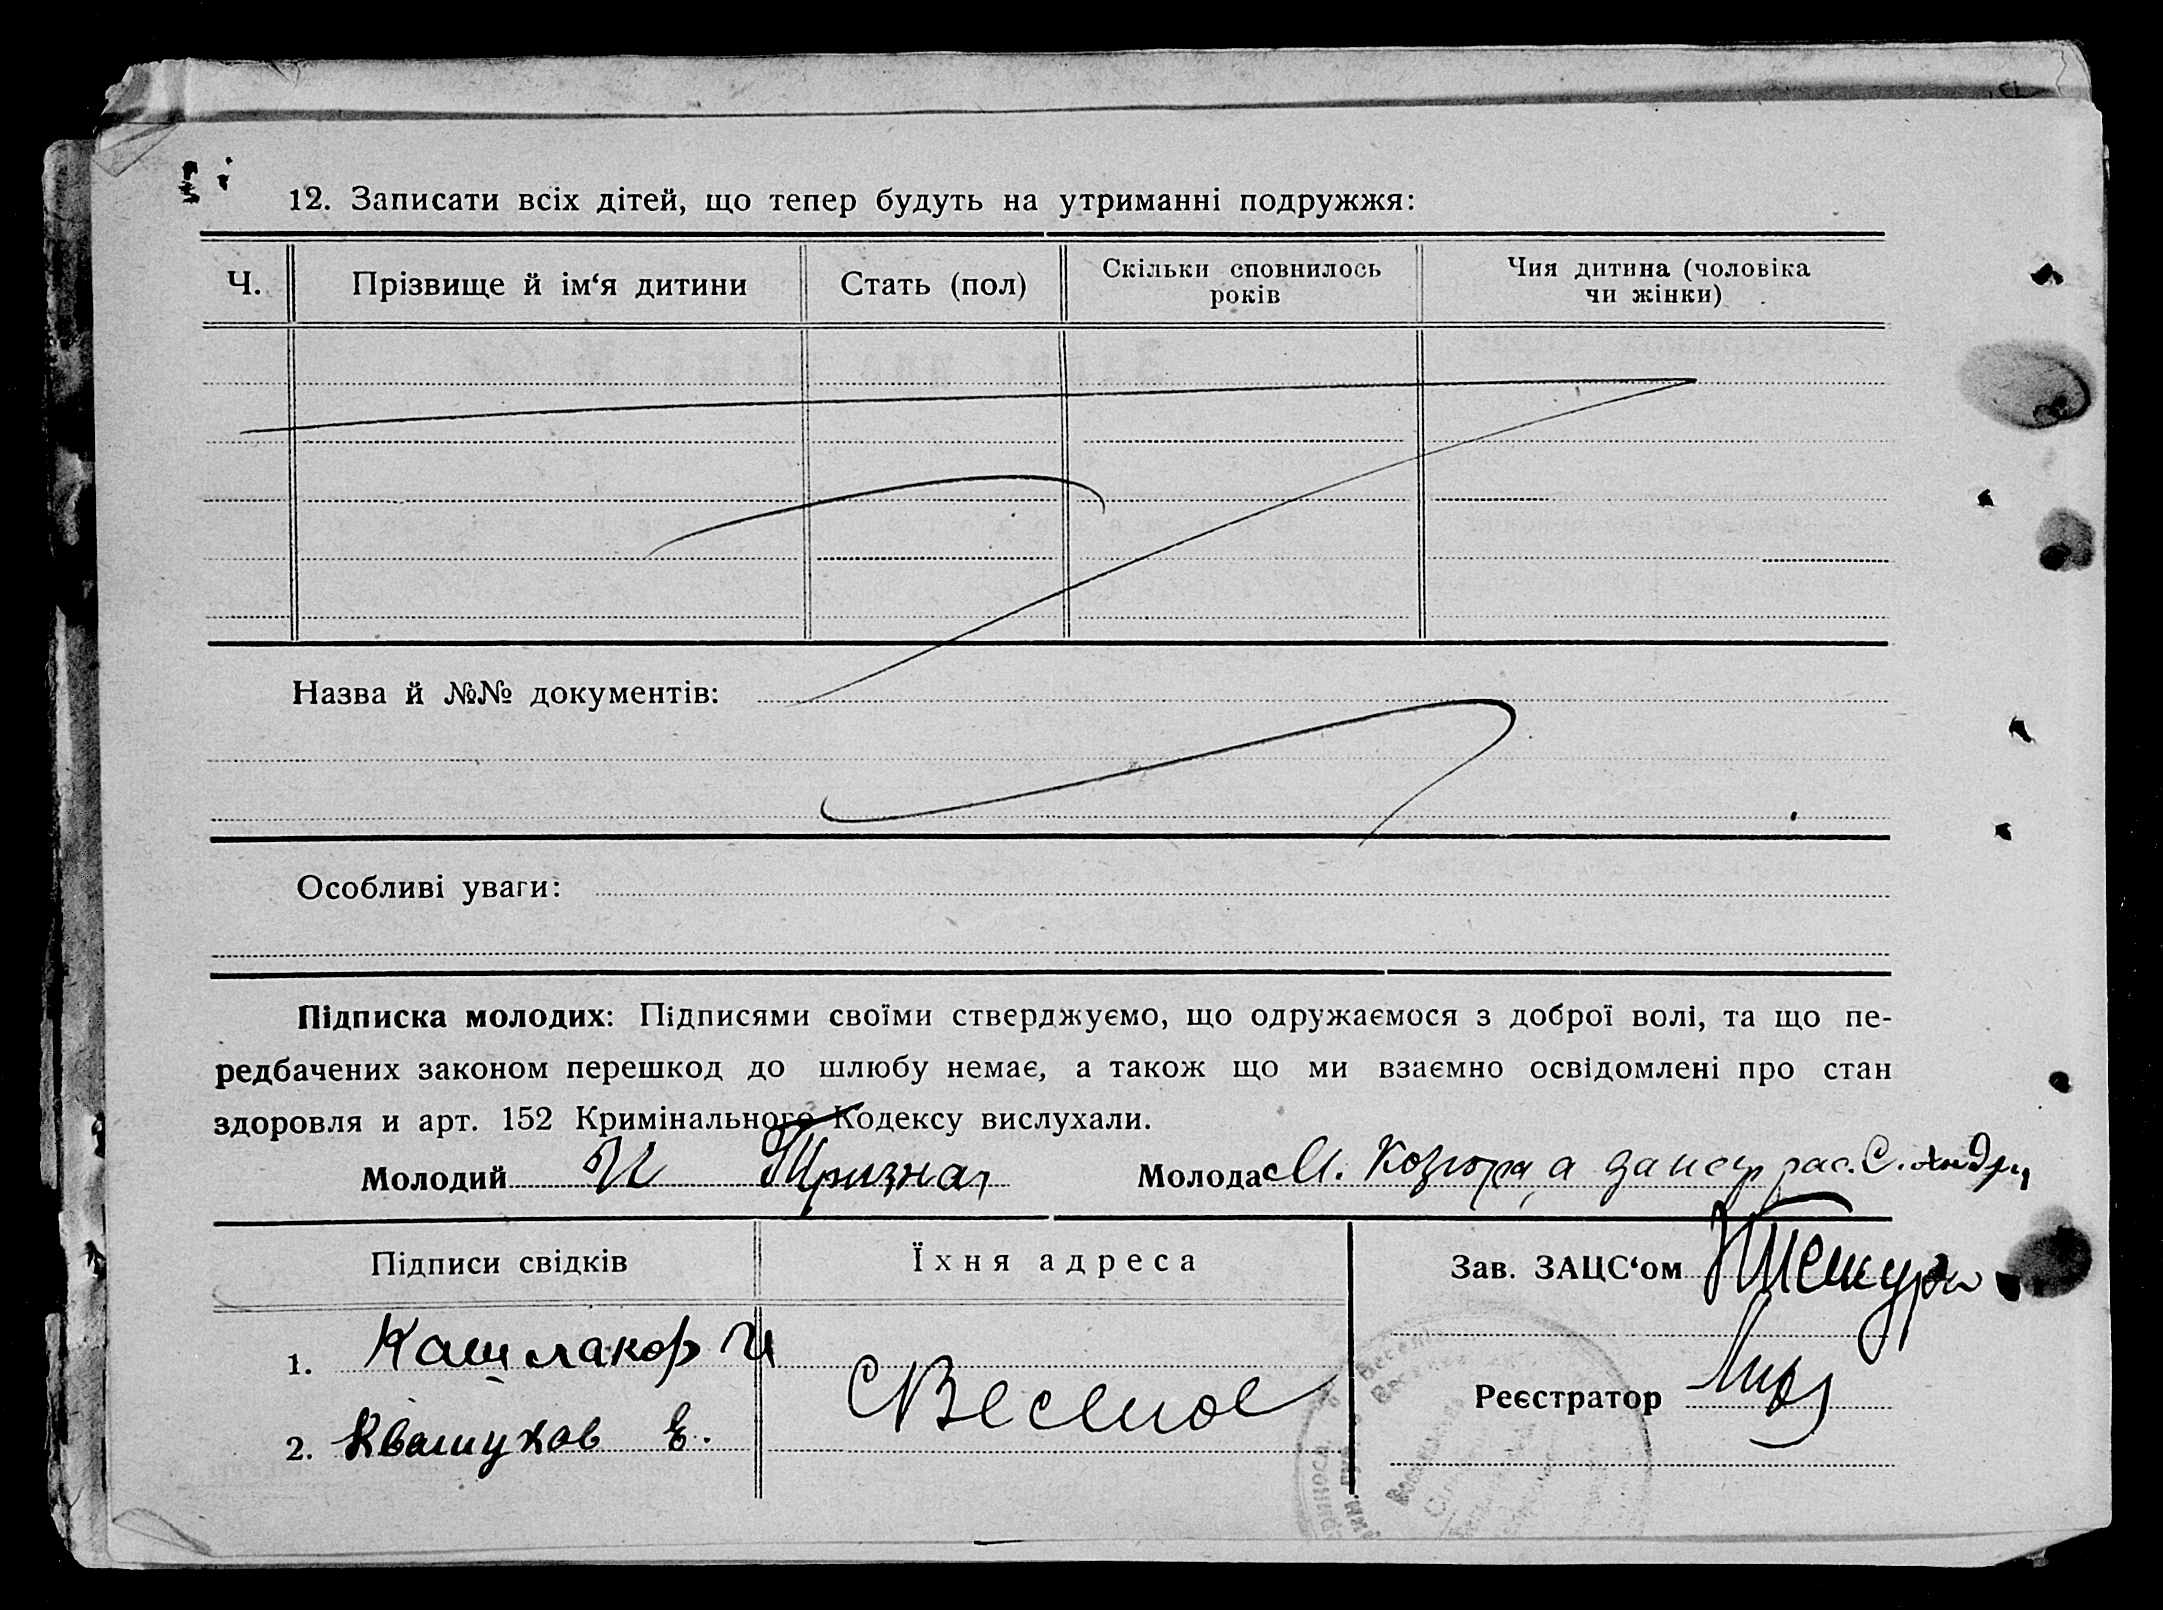 12. Записати всіх дітей, що тепер будуть на утриманні подружжя:
Ч.
Прізвище й ім‘я дитини
Стать (пол)
Скільки сповнилось
років
Чия дитина (чоловіка
чи жінки)
Назва й №№ документів:
Особливі уваги:
Підписка молодих: Підписями своїми стверджуємо, що одружаємося з доброї волі, та що пе-
редбачених законом перешкод до шлюбу немає, а також що ми взаємно освідомлені про стан
здоровля и арт. 152 Кримінального Кодексу вислухали.
Молодий И Тризна
Молода М. а
Підписи свідків
Їхня адреса
Зав. ЗАЦС‘ом
1. Кашлакор И
С Веселое
Реєстратор
2. Квашуков Е.